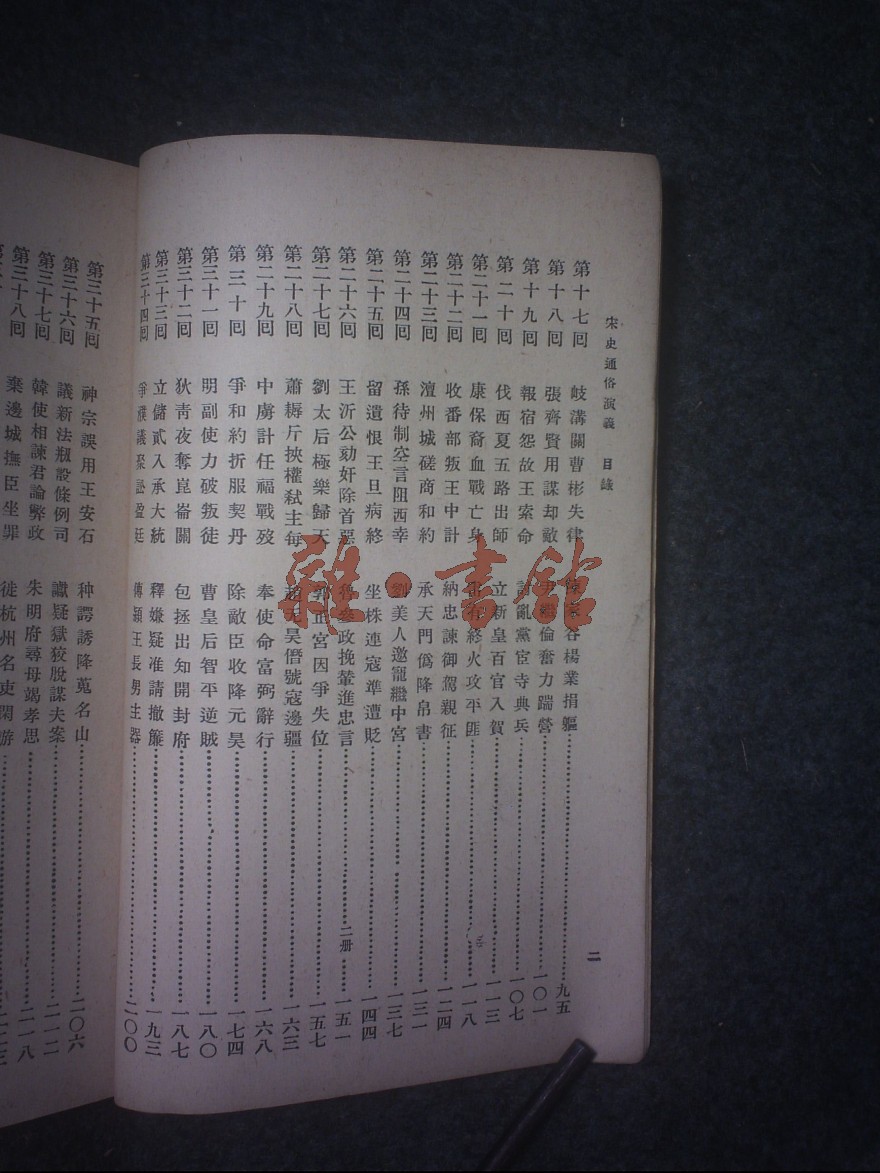 宋史通俗演義 目錄 二
第十七回 岐溝關曹彬失律 陳家谷楊業捐軀 九五
第十八回 張齊賢用謀却敵 尹繼倫奮力踹營 一〇一
第十九回 報宿怨故王索命 討亂黨宦寺典兵 一〇七
第二十回 伐西夏五路出師 立新皇百官入賀 一一三
第二十一回 康保裔血戰亡身 雷有終火攻平匪 一一八
第二十二回 收番部叛王中計 納忠諫御駕親征 一二四
第二十三回 澶州城磋商和約 承天門僞降帛書 一三一
第二十四回 孫待制空言阻西幸 劉美人邀寵繼中宮 一三七
第二十五回 留遺恨王旦病終 坐株連寇準遭貶 一四四
第二十六回 王沂公劾奸除首惡 魯參政挽輦進忠言 二册 一五一
第二十七回 劉太后極樂歸天 郭正宮因爭失位 一五七
第二十八回 蕭耨斤挾權弒主母 趙元昊僭號寇邊疆 一六三
第二十九回 中虜計任福戰歿 奉使命富弼辭行 一六八
第三十回 爭和約折服契丹 除敵臣收降元昊 一七四
第三十一回 明副使力破叛徒 曹皇后智平逆賊 一八〇
第三十二回 狄靑夜奪崑崙關 包拯出知開封府 一八七
第三十三回 立儲貳入承大統 釋嫌疑准請撤簾 一九三
第三十四回 爭濮議聚訟盈廷 傳潁王長男主器 二〇〇
第三十五回 神宗誤用王安石 种諤誘降嵬名山 二〇六
第三十六回 議新法瓶設條例司 讞疑獄狡脫謀夫案 二一二
第三十七回 韓使相諫君論弊政 朱明府尋母竭孝思 二一八
棄邊城撫臣坐罪 徙杭州名吏閑游
雜·書館